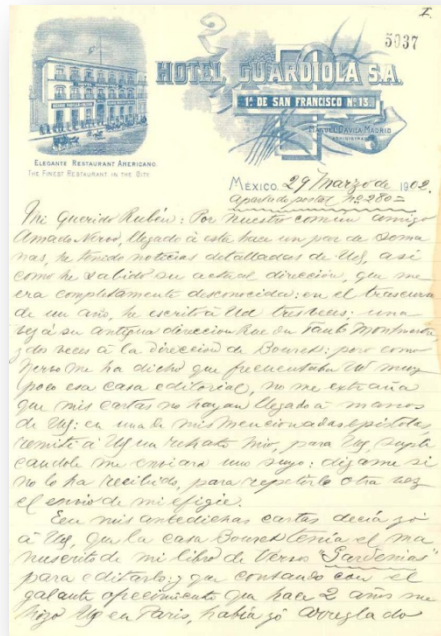 I.
5037
HOTEL GUARDIOLA S.A.
1ª DE SAN FRANCISCO Nº 13
MANUEL DAVILA MADRID
ELEGANTE RESTAURANT AMERICANO
THE FINEST RESTAURANT IN THE CITY
MÉXICO, 29 Marzo de 1902.
apartado postal nº 280=
Mi querido Rubén: Por nuestro comun amigo
Amado Nervo, llegado á esta hace un par de sema
nas, he tenido noticias detalladas de Ud, así
como he sabido su actual dirección, que me
era completamente desconocida: en el trascurso
de un año, he escrito á Ud tres veces: una
á su antigua direccion Rue du Faub Montmartre
y dos veces á la dirección de Bouret: pero como
Nervo me ha dicho que frecuentaba Ud muy
poco esa casa editorial, no me extraña
que mis cartas no hayan llegado á manos
de Ud: en una de mis mencionadas epístolas,
remití á Ud un retrato mio, para Ud, supli
candole me enviara uno suyo: dígame si
no lo ha recibido, para repetirle otra vez
el envio de mi efigie.
En mis antedichas cartas decía yó
á Ud, que la casa Bouret tenía el ma
nuscrito de mi libro de versos "Gardenias"
para editarlo; y que contando con el
galante ofrecimiento que hace 2 años me
hizo Ud en Paris, había yó arreglado